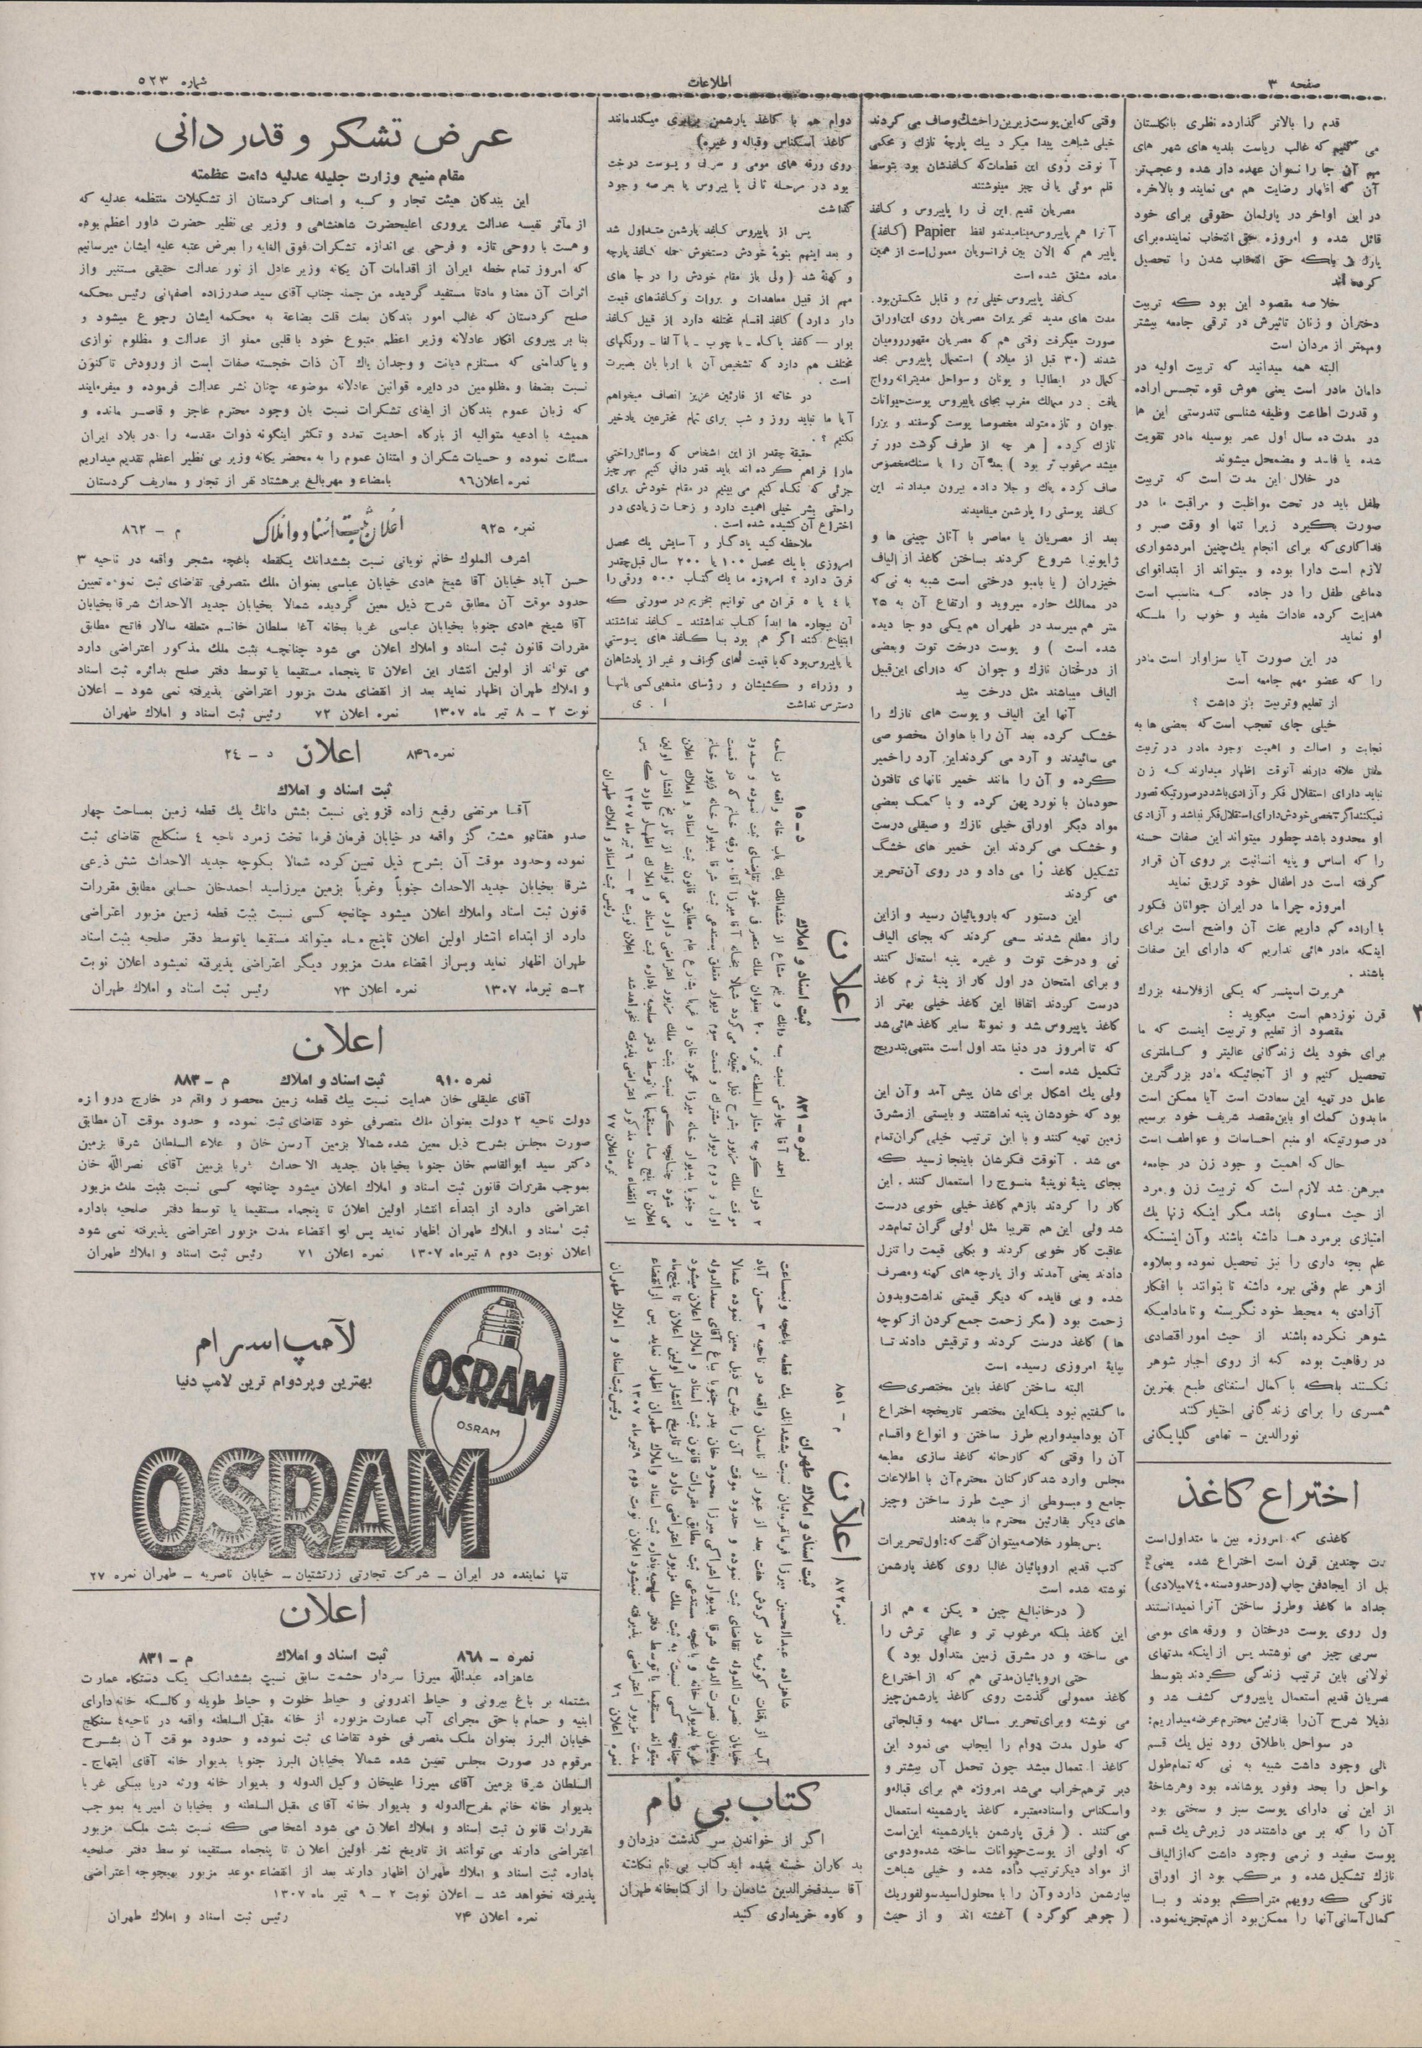 صفحه ۳
اطلاعات
شماره ۵۲۳
قدم را بالاتر گذارده نظری بانگلستان
می کنیم که غالب ریاست بلدیه های شهر های
مهم آن جا را نسوان عهده دار شده و عجب‌تر
آن که اظهار رضایت هم می نمایند و بالاخره
در این اواخر در پارلمان حقوقی برای خود
قائل شده و امروزه حق انتخاب نماینده برای
کرده اند
خلاصه مقصود این بود که تربیت
دختران و زنان تاثیرش در ترقی جامعه بیشتر
ومهمتر از مردان است
البته همه میدانید که تربیت اولیه در
دامان مادر است یعنی هوش قوه تجسس اراده
و قدرت اطاعت وظیفه شناسی تندرستی این ها
در مدت ده سال اول عمر بوسیله مادر تقویت
شده یا فاسد و مضمحل میشوند
در خلال این مدت است که تربیت
طفل باید در تحت مواظبت و مراقبت ما در
صورت بگیرد زیرا تنها او وقت صبر و
فداکاری که برای انجام یك چنین امر دشواری
لازم است دارا بوده و میتواند از ابتدا قوای
دماغی طفل را در جاده که مناسب است
هدایت کرده عادات مفید و خوب را ملکه
او نماید
در این صورت آیا سزاوار است مادر
را که عضو مهم جامعه است
از تعلیم و تربیت باز داشت ؟
خیلی جای تعجب است که بعضی ها به
نجابت و اصالت و اهمیت وجود مادر در تربیت
طفل علاقه دارند آنوقت اظهار میدارند که زن
نباید دارای استقلال فکر و آزادی باشد در صورتیکه تصور
نمیکنند اگر شخصی خودش دارای استقلال فکر نباشد و آزادی
او محدود باشد چطور میتواند این صفات حسنه
را که اساس و پایه انسانیت بر روی آن قرار
گرفته است در اطفال خود تزریق نماید
امروزه چرا ما در ایران جوانان فکور
با اراده کم داریم علت آن واضح است برای
اینکه مادر هائی نداریم که دارای این صفات
باشند .
هربرت اسپنسر که یکی از فلاسفه بزرك
قرن نوزدهم است میگوید :
مقصود از تعلیم و تربیت اینست که ما
برای خود یك زندگانی عالیتر و کاملتری
تحصیل کنیم و از آنجائیکه مادر بزرگترین
عامل در تهیه این سعادت است آیا ممکن است
ما بدون کمك او باین مقصد شریف خود برسیم
در صورتیکه او منبع احساسات و عواطف است
حال که اهمیت و وجود زن در جامعه
مبرهن شد لازم است که تربیت زن و مرد
از حیث مساوی باشد مگر اینکه زنها یك
امتیازی بر مردها داشته باشند و آن اینستکه
علم بچه داری را نیز تحصیل نموده و بعلاوه
از هر علم وفنی بهره داشته تا بتوانند با افکار
آزادی به محیط خود نگریسته و تا مادامیکه
شوهر نکرده باشند از حیث امور اقتصادی
در رفاهیت بوده که از روی اجبار شوهر
نکنند بلکه با کمال استغنای طبع بهترین
همسری را برای زندگانی اختیار کنند
نورالدین - تهامی گلپایگانی
اختراع کاغذ
کاغذی که امروزه بین ما متداول است
چندین قرن است اختراع شده یعنی
از ایجاد فن چاپ (در حدود سنه ۷۴۰ میلادی)
ما کاغذ وطرز ساختن آنرا نمیدانستند
روی پوست درختان و ورقه های مومی
سربی چیز می نوشتند پس از اینکه مدتهای
باین ترتیب زندگی کردند بتوسط
قدیم استعمال پاپیروس کشف شد و
شرح آن را بقارئین محترم عرضه میداریم :
در سواحل باطلاق رود نیل یك قسم
وجود داشت شبیه به نی که تمام طول
را بحد وفور پوشانده بود وهر شاخۀ
از این نی دارای پوست سبز و سختی بود
آن را که بر می داشتند در زیرش یك قسم
پوست سفید و نرمی وجود داشت که از الیاف
نازك تشکیل شده و مرکب بود از اوراق
نازکی که رویهم متراکم بودند و با
کمال آسانی آنها را ممکن بود از هم تجزیه نمود.
وقتی که این پوست زیرین را خشك و صاف می کردند
خیلی شباهت پیدا میکرد بیك پارچۀ نازك و محکمی
آنوقت روی این قطعات که کاغذشان بود بتوسط
قلم موئی یا نی چیز مینوشتند
مصریان قدیم این نی را پاپیروس و کاغذ
آنرا هم پاپیروس مینامیدند و لفظ Papier (کاغذ)
پاپیر هم که الان بین فرانسویان معمول است از همین
ماده مشتق شده است
کاغذ پاپیروس خیلی نرم و قابل شکستن بود.
مدت های مدید تحریرات مصریان روی این اوراق
صورت میگرفت وقتی هم که مصریان مقهور رومیان
شدند (۳۰ قبل از میلاد) استعمال پاپیروس بحد
کمال در ایطالیا و یونان و سواحل مدیترانه رواج
یافت . در ممالك مغرب بجای پاپیروس پوست حیوانات
جوان و تازه متولد مخصوصا پوست گوسفند و بز را
نازك کرده ( هر چه از طرف گوشت دور تر
میشد مرغوب تر بود ) بعد آن را با سنگ مخصوص
صاف کرده پاك و جلا داده بیرون میدادند این
کاغذ پوستی را پارشمن مینامیدند
بعد از مصریان یا معاصر با آنان چینی ها و
ژاپونیها شروع کردند بساختن کاغذ از الیاف
خیزران ( یا بامبو درختی است شبیه به نی که
در ممالك حاره میروید و ارتفاع آن به ۲۵
متر هم میرسد در طهران هم یکی دو جا دیده
شده است ) و پوست درخت توت و بعضی
از درختان نازك و جوان که دارای این قبیل
الیاف میباشند مثل درخت بید
آنها این الیاف و پوست های نازك را
خشك کرده بعد آن را با هاون مخصوصی
می سائیدند و آرد می کردند این آرد را خمیر
کرده و آن را مانند خمیر نانهای تافتون
خودمان با نورد پهن کرده و با کمك بعضی
مواد دیگر اوراق خیلی نازك و صیقلی درست
و خشك می کردند این خمیر های خشگ
تشکیل کاغذ را می داد و در روی آن تحریر
می کردند
این دستور که باروپائیان رسید و از این
راز مطلع شدند سعی کردند که بجای الیاف
نی و درخت توت و غیره پنبه استعمال کنند
و برای امتحان در اول کار از پنبۀ نرم کاغذ
درست کردند اتفاقا این کاغذ خیلی بهتر از
کاغذ پاپیروس شد و نمونۀ سایر کاغذ هائی شد
که تا امروز در دنیا متداول است منتهی بتدریج
تکمیل شده است .
ولی یك اشکال برای شان پیش آمد و آن این
بود که خودشان پنبه نداشتند و بایستی از مشرق
زمین تهیه کنند و با این ترتیب خیلی گران تمام
می شد . آنوقت فکرشان باینجا رسید که
بجای پنبۀ نو پنبۀ منسوج را استعمال کنند . این
کار را کردند باز هم کاغذ خیلی خوبی درست
شد ولی این هم تقریبا مثل اولی گران تمام شد
عاقبت کار خوبی کردند و بکلی قیمت را تنزل
دادند یعنی آمدند و از پارچه های کهنه و مصرف
شده و بی فایده که دیگر قیمتی نداشت و بدون
زحمت بود ( مگر زحمت جمع کردن از کوچه
ها ) کاغذ درست کردند و ترقیش دادند تا
بپایۀ امروزی رسیده است
البته ساختن کاغذ باین مختصری که
ما گفتیم نبود بلکه این مختصر تاریخچه اختراع
آن بود امیدواریم طرز ساختن و انواع و اقسام
آن را وقتی که کارخانه کاغذ سازی مطبعه
مجلس وارد شد کارکنان محترم آن با اطلاعات
جامع و مبسوطی از حیث طرز ساختن و چیز
های دیگر بقارئین محترم ما بدهند
پس بطور خلاصه میتوان گفت که: اول تحریرات
کتب قدیم اروپائیان غالبا روی کاغذ پارشمن
نوشته شده است
( در خانبالیغ چین « پکن » هم از
این کاغذ بلکه مرغوب تر و عالی ترش را
ساخته و در مشرق زمین متداول بود )
حتی اروپائیان مدتی هم که از اختراع
کاغذ معمولی گذشت روی کاغذ پارشمن چیز
می نوشته و برای تحریر مسائل مهمه و قبالجاتی
که طول مدت دوام را ایجاب می نمود این
کاغذ استعمال میشد چون تحمل آن بیشتر و
دیر تر هم خراب می شد امروزه هم برای قباله و
و اسکناس و اسناد معتبره کاغذ پارشمینه استعمال
می کنند . ( فرق پارشمن با پارشمینه این است
که اولی از پوست حیوانات ساخته شده و دومی
از مواد دیگر ترتیب داده شده و خیلی شباهت
بپارشمن دارد و آن را با محلول اسید سولفوریك
( جوهر گوگرد ) آغشته اند و از حیث
دوام هم با کاغذ پارشمن برابری میکند مانند
کاغذ اسکناس وقباله و غیره)
روی ورقه های مومی و سربی و پوست درخت
بود در مرحله ثانی پاپیروس پا بعرصه وجود
گذاشت
پس از پاپیروس کاغذ پارشمن متداول شد
و بعد اینهم بنوبۀ خودش دستخوش حمله کاغذ پارچه
و کهنۀ شد ( ولی باز مقام خودش را در جا های
مهم از قبیل معاهدات و بروات و کاغذهای قیمت
دار دارد ) کاغذ اقسام مختلفه دارد از قبیل کاغذ
مختلف هم دارد که تشخیص آن با اربابان بصیرت
است .
در خاتمه از قارئین عزیز انصاف میخواهم
آیا ما نباید روز و شب برای تمام مخترعین یاد خیر
نکنیم ؟ .
حقیقة چقدر از این اشخاص که وسائل راحتی
مارا فراهم کرده اند باید قدر دانی کنیم بهر چیز
جزئی که نگاه کنیم می بینیم در مقام خودش برای
راحتی بشر خیلی اهمیت دارد و زحمات زیادی در
اختراع آن کشیده شده است .
ملاحظه کنید یادگار و آسایش یك محصل
امروزی با یك محصل ۱۰۰ یا ۲۰۰ سال قبل چقدر
فرق دارد ؟ امروزه ما یك کتاب ۵۰۰ ورقی را
با ٤ یا ٥ قران می توانیم بخریم در صورتی که
آن بیچاره ها ابداً کتاب نداشتند - کاغذ نداشتند
ابتیاع کنند اگر هم بود با کاغذ های پوستی
یا پاپیروس بود که با قیمت های گزاف و غیر از پادشاهان
و وزراء و کشیشان و رؤسای مذهبی کسی بآنها
دسترس نداشت
ا . ی
اعلان
د-۱۵
ثبت اسناد و املاك
نمره-۸۳۱
اعلان نوبت ۳ - ۶ تیر ماه ۱۳۰۷
رئیس ثبت اسناد و املاك طهران
نمره اعلان ۷۷
اعلان
م - ۸۵۱
ثبت اسناد و املاك طهران
نمره ۸۷۲
اعلان نوبت دوم ۹ تیر ماه ۱۳۰۷
رئیس ثبت اسناد و املاك طهران
نمره اعلان ۷۶
کتاب بی نام
اگر از خواندن سر گذشت دزدان و
بد کاران خسته شده اید کتاب بی نام نگاشته
آقا سید فخرالدین شادمان را از کتابخانه طهران
و کاوه خریداری کنید
عرض تشکر و قدردانی
مقام منیع وزارت جلیله عدلیه دامت عظمته
این بندگان هیئت تجار و کسبه و اصناف کردستان از تشکیلات منتظمه عدلیه که
از مآثر نفیسه عدالت پروری اعلیحضرت شاهنشاهی و وزیر بی نظیر حضرت داور اعظم بوده
و هست با روحی تازه و فرحی بی اندازه تشکرات فوق الغایه را بعرض عتبه علیه ایشان میرسانیم
که امروز تمام خطه ایران از اقدامات آن یگانه وزیر عادل از نور عدالت حقیقی مستنیر و از
اثرات آن معنا و مادتا مستفید گردیده من جمله جناب آقای سید صدرزاده اصفهانی رئیس محکمه
صلح کردستان که غالب امور بندگان بعلت قلت بضاعة به محکمه ایشان رجوع میشود و
بنا بر پیروی افکار عادلانه وزیر اعظم متبوع خود با قلبی مملو از عدالت و مظلوم نوازی
و پاکدامنی که مستلزم دیانت و وجدان پاك آن ذات خجسته صفات است از ورودش تا کنون
نسبت بضعفا و مظلومین در دایره قوانین عادلانه موضوعه چنان نشر عدالت فرموده و میفرمایند
که زبان عموم بندگان از ایفای تشکرات نسبت بان وجود محترم عاجز و قاصر مانده و
همیشه با ادعیه متوالیه از بارگاه احدیت تعدد و تکثر اینگونه ذوات مقدسه را در بلاد ایران
مسئلت نموده و حسیات شکران و امتنان عموم را به محضر یگانه وزیر بی نظیر اعظم تقدیم میداریم
نمره اعلان ۹۶ بامضاء و مهر بالغ بر هشتاد نفر از تجار و معاریف کردستان
نمره ۹۲۵ اعلان ثبت اسناد و املاك م - ۸۶۲
اشرف الملوك خانم نوبانی نسبت بششدانك یکقطعه باغچه مشجر واقعه در ناحیه ۳
حسن آباد خیابان آقا شیخ هادی خیابان عباسی بعنوان ملك متصرفی تقاضای ثبت نموده تعیین
حدود موقت آن مطابق شرح ذیل معین گردیده شمالا بخیابان جدید الاحداث شرقا بخیابان
آقا شیخ هادی جنوبا بخیابان عباسی غربا بخانه آغا سلطان خانم متعلقه سالار فاتح مطابق
مقررات قانون ثبت اسناد و املاك اعلان می شود چنانچه به ثبت ملك مذکور اعتراضی دارد
می تواند از اولین انتشار این اعلان تا پنجماه مستقیما یا توسط دفتر صلح بدائره ثبت اسناد
و املاك طهران اظهار نماید بعد از انقضای مدت مزبور اعتراضی پذیرفته نمی شود - اعلان
نوبت ۲ - ۸ تیر ماه ۱۳۰۷ نمره اعلان ۷۲ رئیس ثبت اسناد و املاك طهران
نمره ۸۴۶ اعلان د - ۲۴
ثبت اسناد و املاك
آقا مرتضی رفیع زاده قزوینی نسبت بشش دانك یك قطعه زمین بمساحت چهار
صد و هفتاد و هشت گز واقعه در خیابان فرمان فرما تخت زمرد ناحیه ٤ سنگلج تقاضای ثبت
نموده وحدود موقت آن بشرح ذیل تعیین کرده شمالا بکوچه جدید الاحداث شش ذرعی
شرقا بخیابان جدید الاحداث جنوباً وغرباً بزمین میرزا سید احمدخان حسابی مطابق مقررات
قانون ثبت اسناد واملاك اعلان میشود چنانچه کسی نسبت بثبت قطعه زمین مزبور اعتراضی
دارد از ابتداء انتشار اولین اعلان تا پنج ماه میتواند مستقیما یا توسط دفتر صلحیه بثبت اسناد
طهران اظهار نماید و پس از انقضاء مدت مزبور دیگر اعتراضی پذیرفته نمیشود اعلان نوبت
۲-۵ تیر ماه ۱۳۰۷ نمره اعلان ۷۳ رئیس ثبت اسناد و املاك طهران
اعلان
نمره ۹۱۰ ثبت اسناد و املاك م - ۸۸۳
آقای علیقلی خان هدایت نسبت بیك قطعه زمین محصور واقع در خارج دروازه
دولت ناحیه ۲ دولت بعنوان ملك متصرفی خود تقاضای ثبت نموده و حدود موقت آن مطابق
صورت مجلس بشرح ذیل معین شده شمالا بزمین آرسن خان و علاء السلطان شرقا بزمین
دکتر سید ابوالقاسم خان جنوبا بخیابان جدید الاحداث غربا بزمین آقای نصرالله خان
بموجب مقررات قانون ثبت اسناد و املاك اعلان میشود چنانچه کسی نسبت بثبت ملك مزبور
اعتراضی دارد از ابتداء انتشار اولین اعلان تا پنجماه مستقیما یا توسط دفتر صلحیه باداره
ثبت اسناد و املاك طهران اظهار نماید پس از انقضاء مدت مزبور اعتراضی پذیرفته نمی شود
اعلان نوبت دوم ۸ تیرماه ۱۳۰۷ نمره اعلان ۷۱ رئیس ثبت اسناد و املاك طهران
لامپ اسرام
بهترین و پردوام ترین لامپ دنیا
OSRAM
OSRAM
OSRAM
تنها نماینده در ایران - شرکت تجارتی زرتشتیان - خیابان ناصریه - طهران نمره ۲۷
اعلان
نمره - ۸۶۸ ثبت اسناد و املاك م - ۸۳۱
شاهزاده عبدالله میرزا سردار حشمت سابق نسبت بششدانگ یک دستگاه عمارت
مشتمله بر باغ بیرونی و حیاط اندرونی و حیاط خلوت و حیاط طویله و کالسکه خانه دارای
ابنیه و حمام با حق مجرای آب عمارت مزبوره از خانه مقبل السلطنه واقعه در ناحیه ٤ سنگلج
خیابان البرز بعنوان ملک متصرفی خود تقاضای ثبت نموده و حدود موقت آن بشرح
مرقوم در صورت مجلس تعیین شده شمالا بخیابان البرز جنوبا بدیوار خانه آقای ابتهاج-
السلطان شرقا بزمین آقای میرزا علیخان وکیل الدوله و بدیوار خانه ورثه دریا بیگی غربا
بدیوار خانه خانم مفرح الدوله و بدیوار خانه آقای مقبل السلطنه و بخیابان امیریه بموجب
مقررات قانون ثبت اسناد و املاك اعلان می شود اشخاصی که نسبت بثبت ملک مزبور
اعتراضی دارند می توانند از تاریخ نشر اولین اعلان تا پنجماه مستقیما توسط دفتر صلحیه
باداره ثبت اسناد و املاك طهران اظهار دارند بعد از انقضاء موعد مزبور بهیچوجه اعتراضی
پذیرفته نخواهد شد - اعلان نوبت ۲ - ۹ تیر ماه ۱۳۰۷
نمره اعلان ۷۴ رئیس ثبت اسناد و املاك طهران